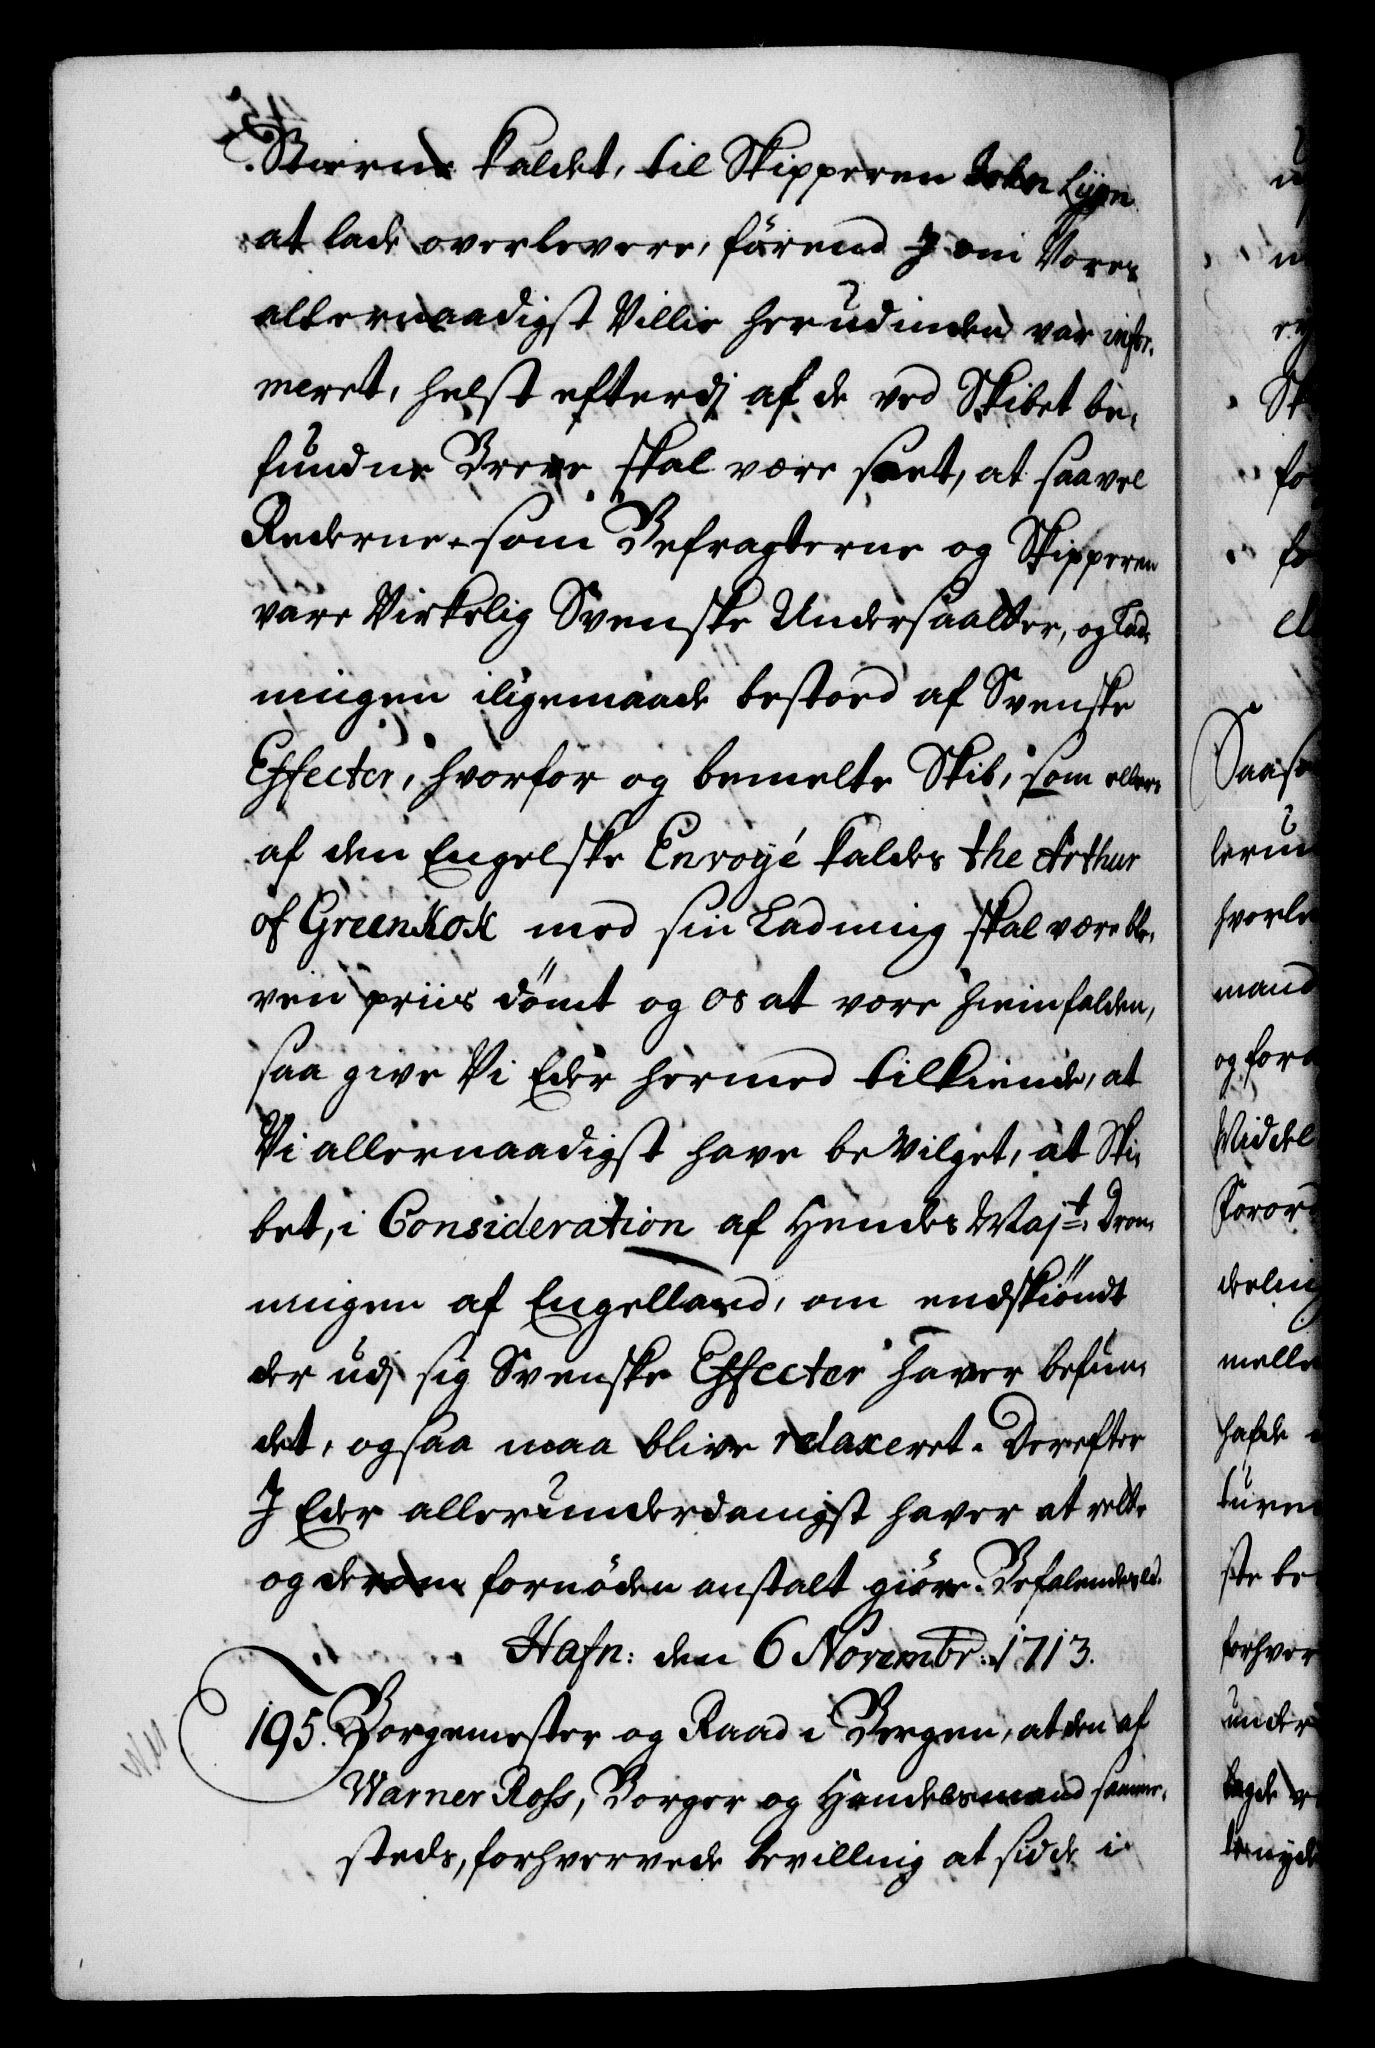 Stierne kaldet, til Skipperen John Lyon
at lade overlevere, förend I om Vores
allernaadigst Villie herudinden var infor-
meret, helst efterdj af de ved Skibet be-
fundne Breve skal være seet, at saavel
Rederne som Befragterne og Skipperen
vare Virkelig Svenske Undersaatter, og Lad-
ningen iligemaade bestoed af Svenske
Effecter, hvorfor og bemelte Skib, som ellers
af den Engelske Envoyé kaldes the Arthur
of Greenkok med sin Ladning skal være ble-
ven priis dömt og os at være hiemfalden,
saa give Vi Eder hermed tilkiende, at
Vi allernaadigst have beVilget, at Ski-
bet, i Consideration af Hendes Majt: Dron-
ningen af Engelland, om endskiöndt
der udj sig Svenske Effecter haver befun-
det, ogsaa maa blive relaxeret. Derefter
I Eder allerunderdanigst haver at rette
og derom fornöden anstalt giöre. Befalendes Ed.
Hafn: den 6 Novembr: 1713.
195. Borgemester og Raad i Bergen, at den af
Warner Ross, Borger og Handelsmand samme-
steds, forhvervede bevilling at sidde i